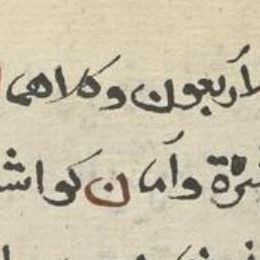 لاربعون وكلاهما
شرة وآمان كواش